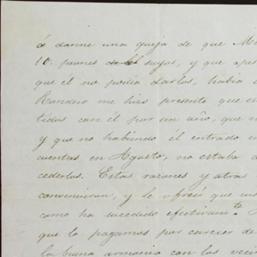 á darme una queja de que M
10 peones de los suyos, y que ape
que él no podia darlos, habia
Ramiro me hizo presente que e
tidas con él por un año, que
y que no habiendo él entrado
cuentas en Agosto, no estaba
cederlos. Estas razones y otras
convinieron, y se ofreció que
como ha sucedido efectivam.te
que lo pagamos por carecer de
la buena armonia con los veci